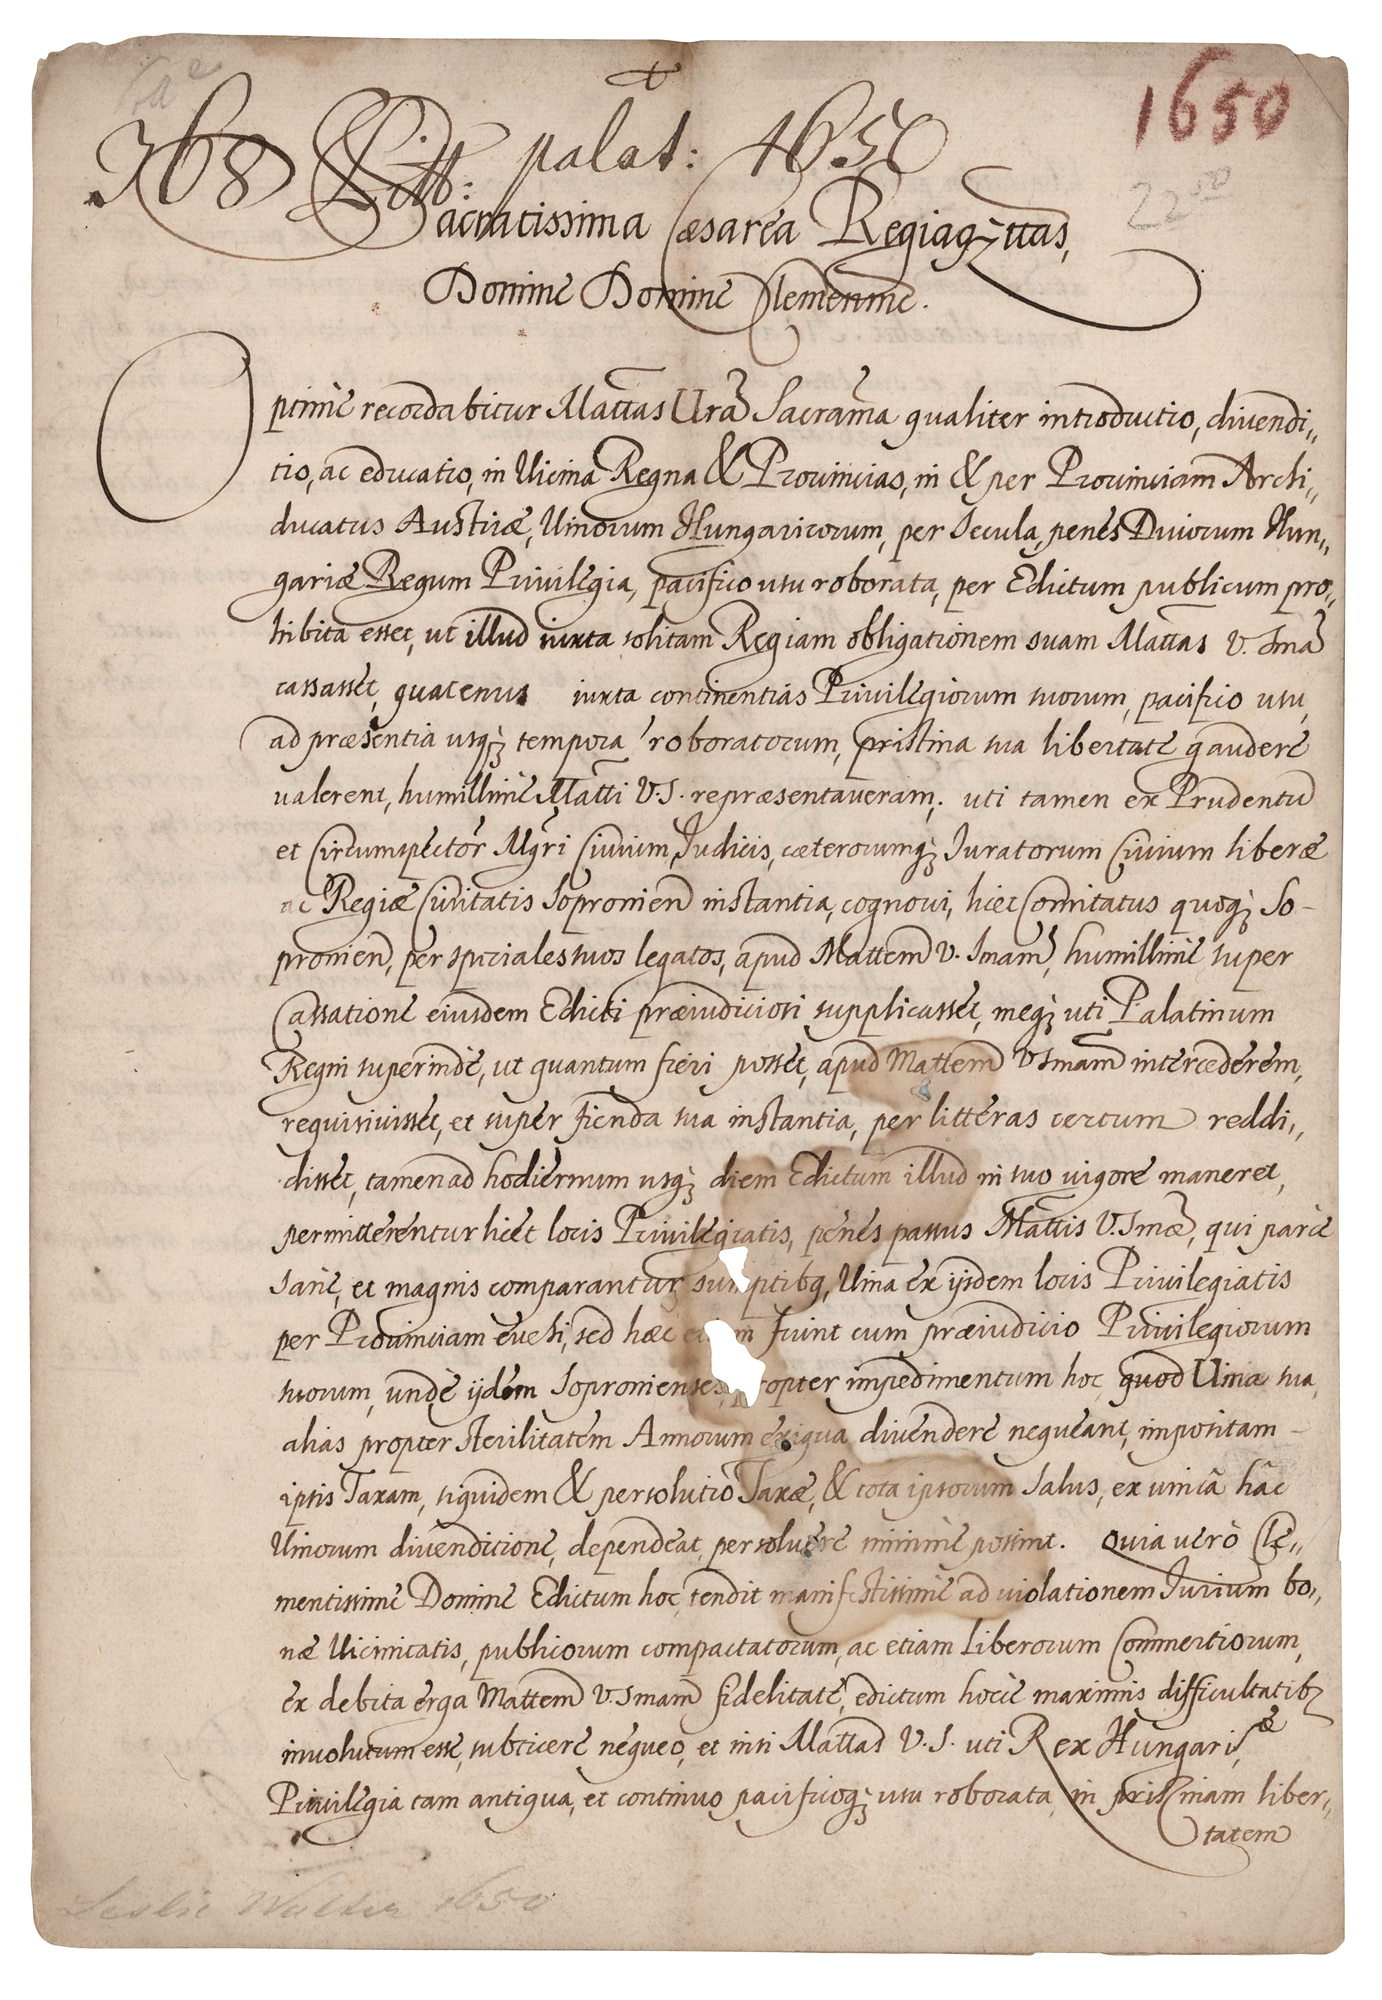 1650
368 Litt: palat: 1650
2200
Sacratissima Cæsarea Regiaq; Mttas,
Domine Domine Clementme.
Optime recordabitur Mattas Vrã Sacramã qualiter introductio, divendi,,
tio, ac educatio, in Vicina Regna & Provincias, in & per Provinciam Archi,,
ducatus Austriæ, Vinorum Hungaricorum, per Secula, penes Divorum Hun,,
gariæ Regum Privilegia, pacifico usu roborata, per Edictum publicum pro,,
hibita esset, ut illud iuxta solitam Regiam obligationem suam Mattas V. Smã
cassasset, quatenus iuxta continentias Privilegiorum suorum, pacifico usu,
ad præsentia usq; tempora roboratorum, pristina sua libertate gaudere
valerent, humillime Matti V. S. repræsentaveram; uti tamen ex Prudentũ
et Circumspector Mgri Civium, Judicis, cæterorumq; Juratorum Civium liberæ
ac Regiæ Civitatis Sopronien instantia, cognovi, licet Comitatus quoq; So-
pronien, per speciales suos legatos, apud Mattem V. Smam, humillime super
Cassatione eiusdem Edicti præiudiciosi supplicasset, meq; uti Palatinum
Regni superinde, ut quantum fieri posset, apud Mattem V Smam intercederem,
requisivisset, et super fienda sua instantia, per litteras certum reddi,,
disset, tamen ad hodiernum usq; diem Edictum illud in suo vigore maneret,
permitterentur licet locis Privilegiatis, penes passus Mattis V. Smæ, qui parce
sane, et magnis comparantur sumptibq, Vina ex ijsdem locis Privilegiatis
per Provinciam evehi, sed hæc etiam fiunt cum præiudicio Privilegiorum
suorum, unde ijdem Sopronienses, propter impedimentum hoc, quod Vina sua,
alias propter sterilitatem Annorum exigua divendere nequeant, impositam -
ipsis Taxam, siquidem & persolutio Taxæ, & tota ipsorum Salus, ex unicâ hâc
Vinorum divenditione, dependeat, persolvere minime possint. Quia verò Cle,,
mentissime Domine Edictum hoc, tendit manifestissime ad violationem Jurium bo,,
næ Vicinitatis, publicorum compactatorum, ac etiam liberorum Commertiorum,
ex debita erga Mattem V. Smam fidelitate, edictum hocce maximis difficultatib;
involutum esse, subticere nequeo, et nisi Mattas V. S. uti Rex Hungariæ,
Privilegia tam antiqua, et continuo pacificoq; usu roborata, in pristinam liber,,
tatem
Leslie Walter 1650